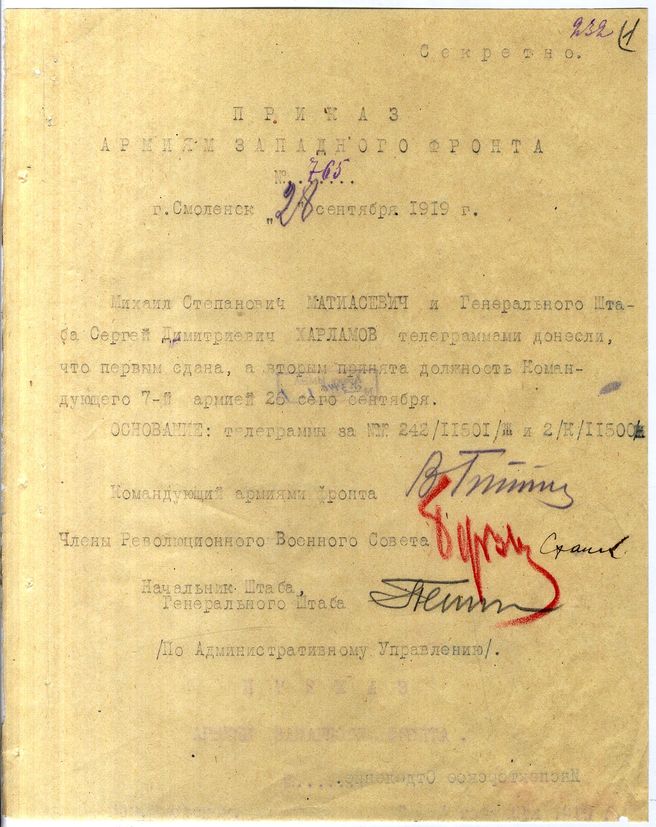 232
Секретно.
ПРИКАЗ
АРМИЯМ ЗАПАДНОГО ФРОНТА
№..765....
г.Смоленск „28" сентября 1919 г.
Михаил Степанович МАТИАСЕВИЧ и Генерального Шта-
ба Сергей Димитриевич ХАРЛАМОВ телеграммами донесли,
что первым сдана, а вторым принята должность Коман-
дующего 7-й армией 26 сего сентября.
ОСНОВАНИЕ: телеграммы за №№ 242/II501/Ж и 2/К/II500/
Командующий армиями фронта
Члены Революционного Военного Совета
Начальник Штаба,
Генерального Штаба
/По Административному Управлению/.